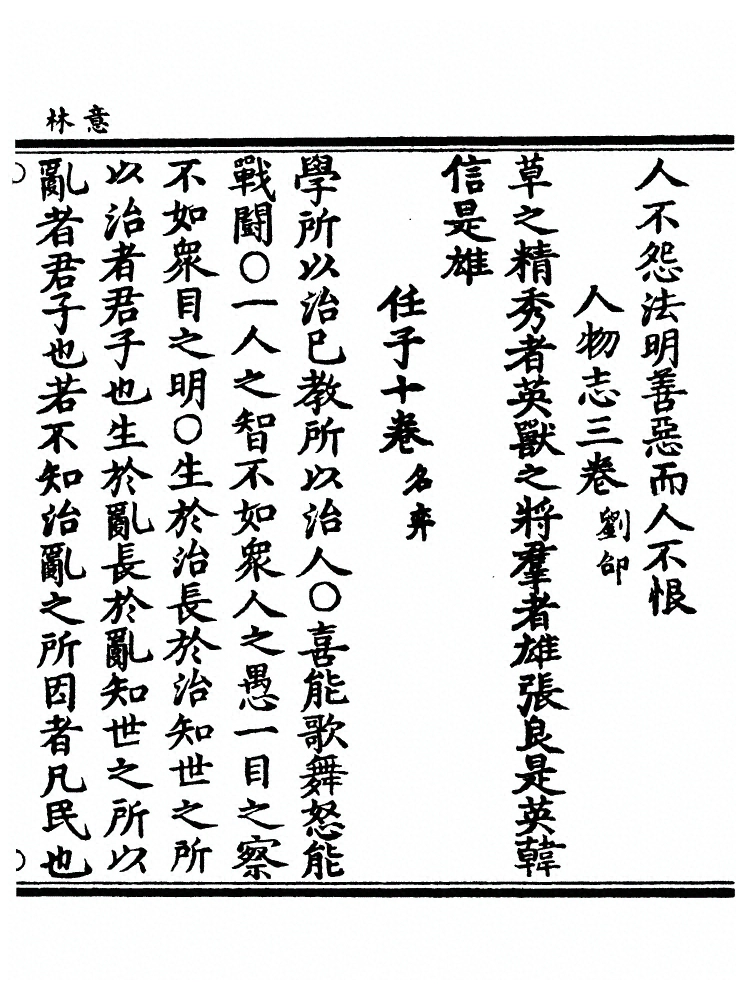 意林
人不怨法明善惡而人不恨
人物志三卷 劉邵
草之精秀者英獸之將羣者雄張良是英韓
信是雄
任子十卷 名弈
學所以治已教所以治人〇喜能歌舞怒能
戰鬬〇一人之智不如衆人之愚一目之察
不如衆目之明〇生於治長於治知世之所
以治者君子也生於亂長於亂知世之所以
亂者君子也若不知治亂之所因者凡民也